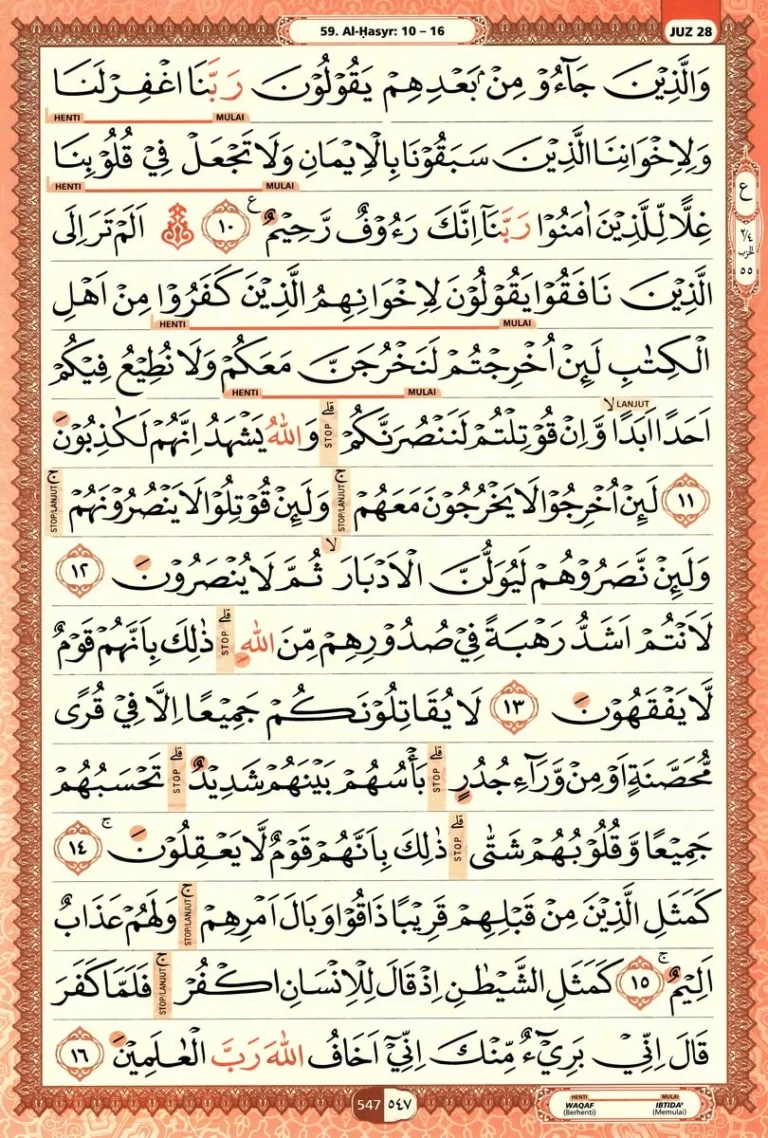 59. Al-Ḥasyr: 10 – 16
JUZ 28
وَالَّذِيْنَ جَاۤءُوْ مِنْۢ بَعْدِهِمْ يَقُوْلُوْنَ رَبَّنَا اغْفِرْ لَنَا
HENTI MULAI
وَلِاِخْوَانِنَا الَّذِيْنَ سَبَقُوْنَا بِالْاِيْمَانِ وَلَا تَجْعَلْ فِيْ قُلُوْبِنَا
HENTI MULAI
غِلًّا لِّلَّذِيْنَ اٰمَنُوْا رَبَّنَآ اِنَّكَ رَءُوْفٌ رَّحِيْمٌ ࣖ ١٠ ۞ اَلَمْ تَرَ اِلَى
ع
٢/٤
الحزب
٥٥
الَّذِيْنَ نَافَقُوْا يَقُوْلُوْنَ لِاِخْوَانِهِمُ الَّذِيْنَ كَفَرُوْا مِنْ اَهْلِ
HENTI MULAI
الْكِتٰبِ لَىِٕنْ اُخْرِجْتُمْ لَنَخْرُجَنَّ مَعَكُمْ وَلَا نُطِيْعُ فِيْكُمْ
HENTI MULAI
LANJUT
اَحَدًا اَبَدًاۙ وَّاِنْ قُوْتِلْتُمْ لَنَنْصُرَنَّكُمْۗ STOP وَاللّٰهُ يَشْهَدُ اِنَّهُمْ لَكٰذِبُوْنَ
١١ لَىِٕنْ اُخْرِجُوْا لَا يَخْرُجُوْنَ مَعَهُمْۚ STOP/LANJUT وَلَىِٕنْ قُوْتِلُوْا لَا يَنْصُرُوْنَهُمْۚ STOP/LANJUT
وَلَىِٕنْ نَّصَرُوْهُمْ لَيُوَلُّنَّ الْاَدْبَارَۙ ثُمَّ لَا يُنْصَرُوْنَ ١٢
لَاَنْتُمْ اَشَدُّ رَهْبَةً فِيْ صُدُوْرِهِمْ مِّنَ اللّٰهِۗ STOP ذٰلِكَ بِاَنَّهُمْ قَوْمٌ
لَّا يَفْقَهُوْنَ ١٣ لَا يُقَاتِلُوْنَكُمْ جَمِيْعًا اِلَّا فِيْ قُرًى
مُّحَصَّنَةٍ اَوْ مِنْ وَّرَاۤءِ جُدُرٍۗ STOP بَأْسُهُمْ بَيْنَهُمْ شَدِيْدٌۗ STOP تَحْسَبُهُمْ
جَمِيْعًا وَّقُلُوْبُهُمْ شَتّٰىۗ STOP ذٰلِكَ بِاَنَّهُمْ قَوْمٌ لَّا يَعْقِلُوْنَۚ ١٤
كَمَثَلِ الَّذِيْنَ مِنْ قَبْلِهِمْ قَرِيْبًا ذَاقُوْا وَبَالَ اَمْرِهِمْۚ STOP/LANJUT وَلَهُمْ عَذَابٌ
اَلِيْمٌۚ ١٥ كَمَثَلِ الشَّيْطٰنِ اِذْ قَالَ لِلْاِنْسَانِ اكْفُرْۚ STOP/LANJUT فَلَمَّا كَفَرَ
قَالَ اِنِّيْ بَرِيْۤءٌ مِّنْكَ اِنِّيْٓ اَخَافُ اللّٰهَ رَبَّ الْعٰلَمِيْنَ ١٦
547 ٥٤٧
HENTI MULAI
WAQAF IBTIDA'
(Berhenti) (Memulai)